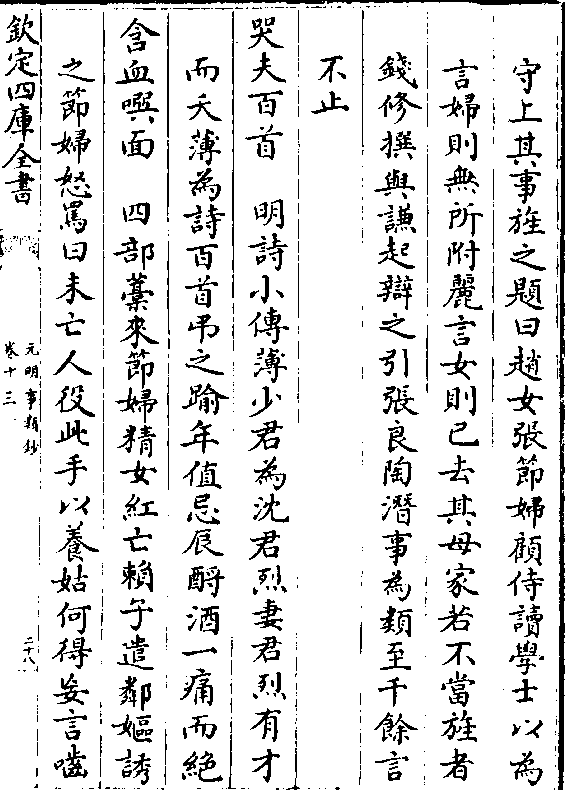 守上其事旌之題曰趙女張節婦顧侍讀學士以為
言婦則無所附麗言女則已去其母家若不當旌者
錢修撰與謙起辯之引張良陶潛事為類至千餘言
不止
哭夫百首　明詩小傳薄少君為沈君烈妻君烈有才
而夭薄為詩百首弔之踰年值忌辰酹酒一痛而絕
含血噀面　四部藳來節婦精女紅亡賴子遣鄰嫗誘
之節婦怒罵曰未亡人役此手以養姑何得妄言嚙
欽定四庫全書
元明事類鈔
卷十三
二十八